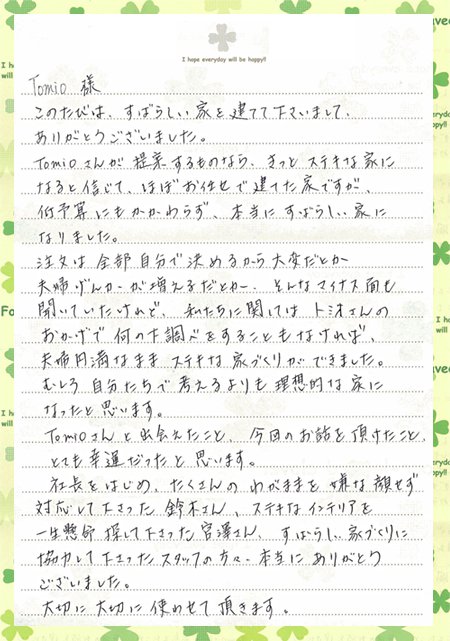 I hope everyday will be happy!!
Tomio 様
このたびは、すばらしい家を建てて下さいまして、
ありがとうございました。
Tomioさんが提案するものなら、きっとステキな家に
なると信じて、ほぼお任せで建てた家ですが、
低予算にもかかわらず、本当にすばらしい家に
なりました。
注文は全部自分で決めるから大変だとか
夫婦げんかが増えるだとか、そんなマイナス面も
聞いていたけれど、私たちに関してはトミオさんの
おかげで何の下調べをすることもなければ、
夫婦円満なままステキな家づくりができました。
むしろ自分たちで考えるよりも理想的な家に
なったと思います。
Tomioさんと出会えたこと、今回のお話を頂けたこと、
とても幸運だったと思います。
社長をはじめ、たくさんのわがままを嫌な顔せず
対応して下さった鈴木さん、ステキなインテリアを
一生懸命探して下さった宮澤さん、すばらしい家づくりに
協力して下さったスタッフの方々、本当にありがとう
ございました。
大切に大切に使わせて頂きます。